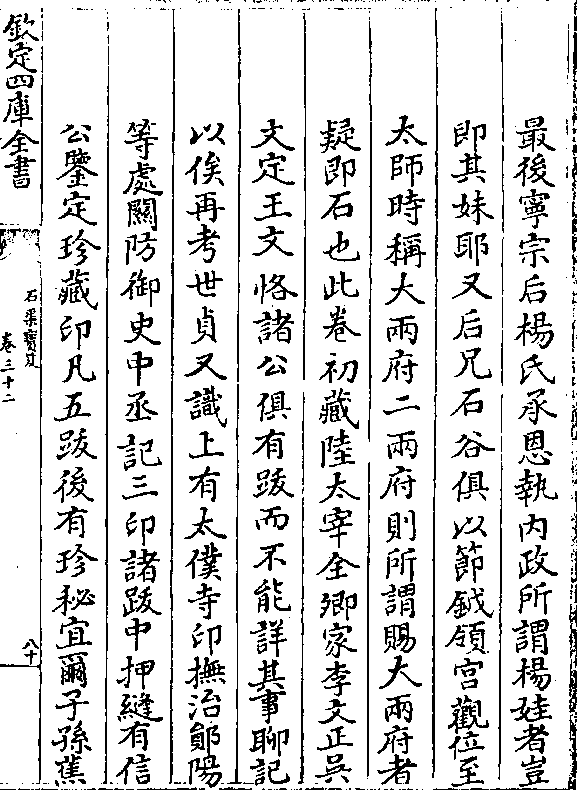 最後寧宗后楊氏承恩執内政所謂楊娃者豈
即其妹耶又后兄石谷俱以節鉞領宫觀位至
太師時稱大兩府二兩府則所謂賜大兩府者
疑即石也此卷初藏陸太宰全卿家李文正吳
文定王文恪諸公俱有䟦而不能詳其事聊記
以俟再考世貞又識上有太僕寺印撫治鄖陽
等處關防御史中丞記三印諸䟦中押縫有信
公鑒定珍藏印凡五䟦後有珍秘宜爾子孫蕉
欽定四庫全書
石渠寳笈
卷三十二
八十